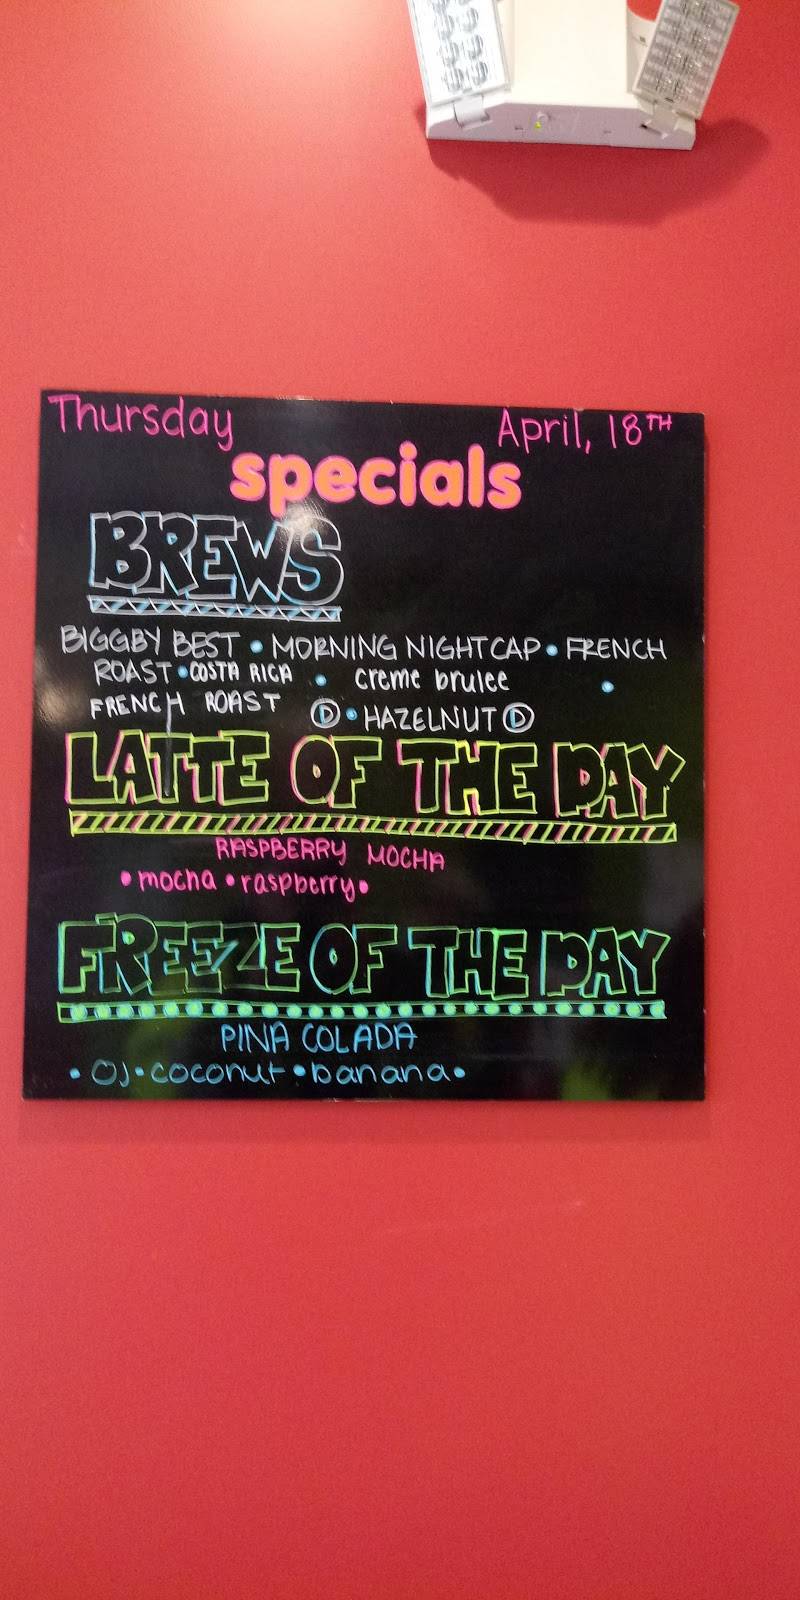 Thursday April, 18TH
specials
BREWS
BIGGBY BEST • MORNING NIGHTCAP • FRENCH
ROAST • COSTA RICA • creme brulee •
FRENCH ROAST Ⓓ • HAZELNUT Ⓓ
LATTE OF THE DAY
RASPBERRY MOCHA
• mocha • raspberry •
FREEZE OF THE DAY
PINA COLADA
• OJ • coconut • banana •